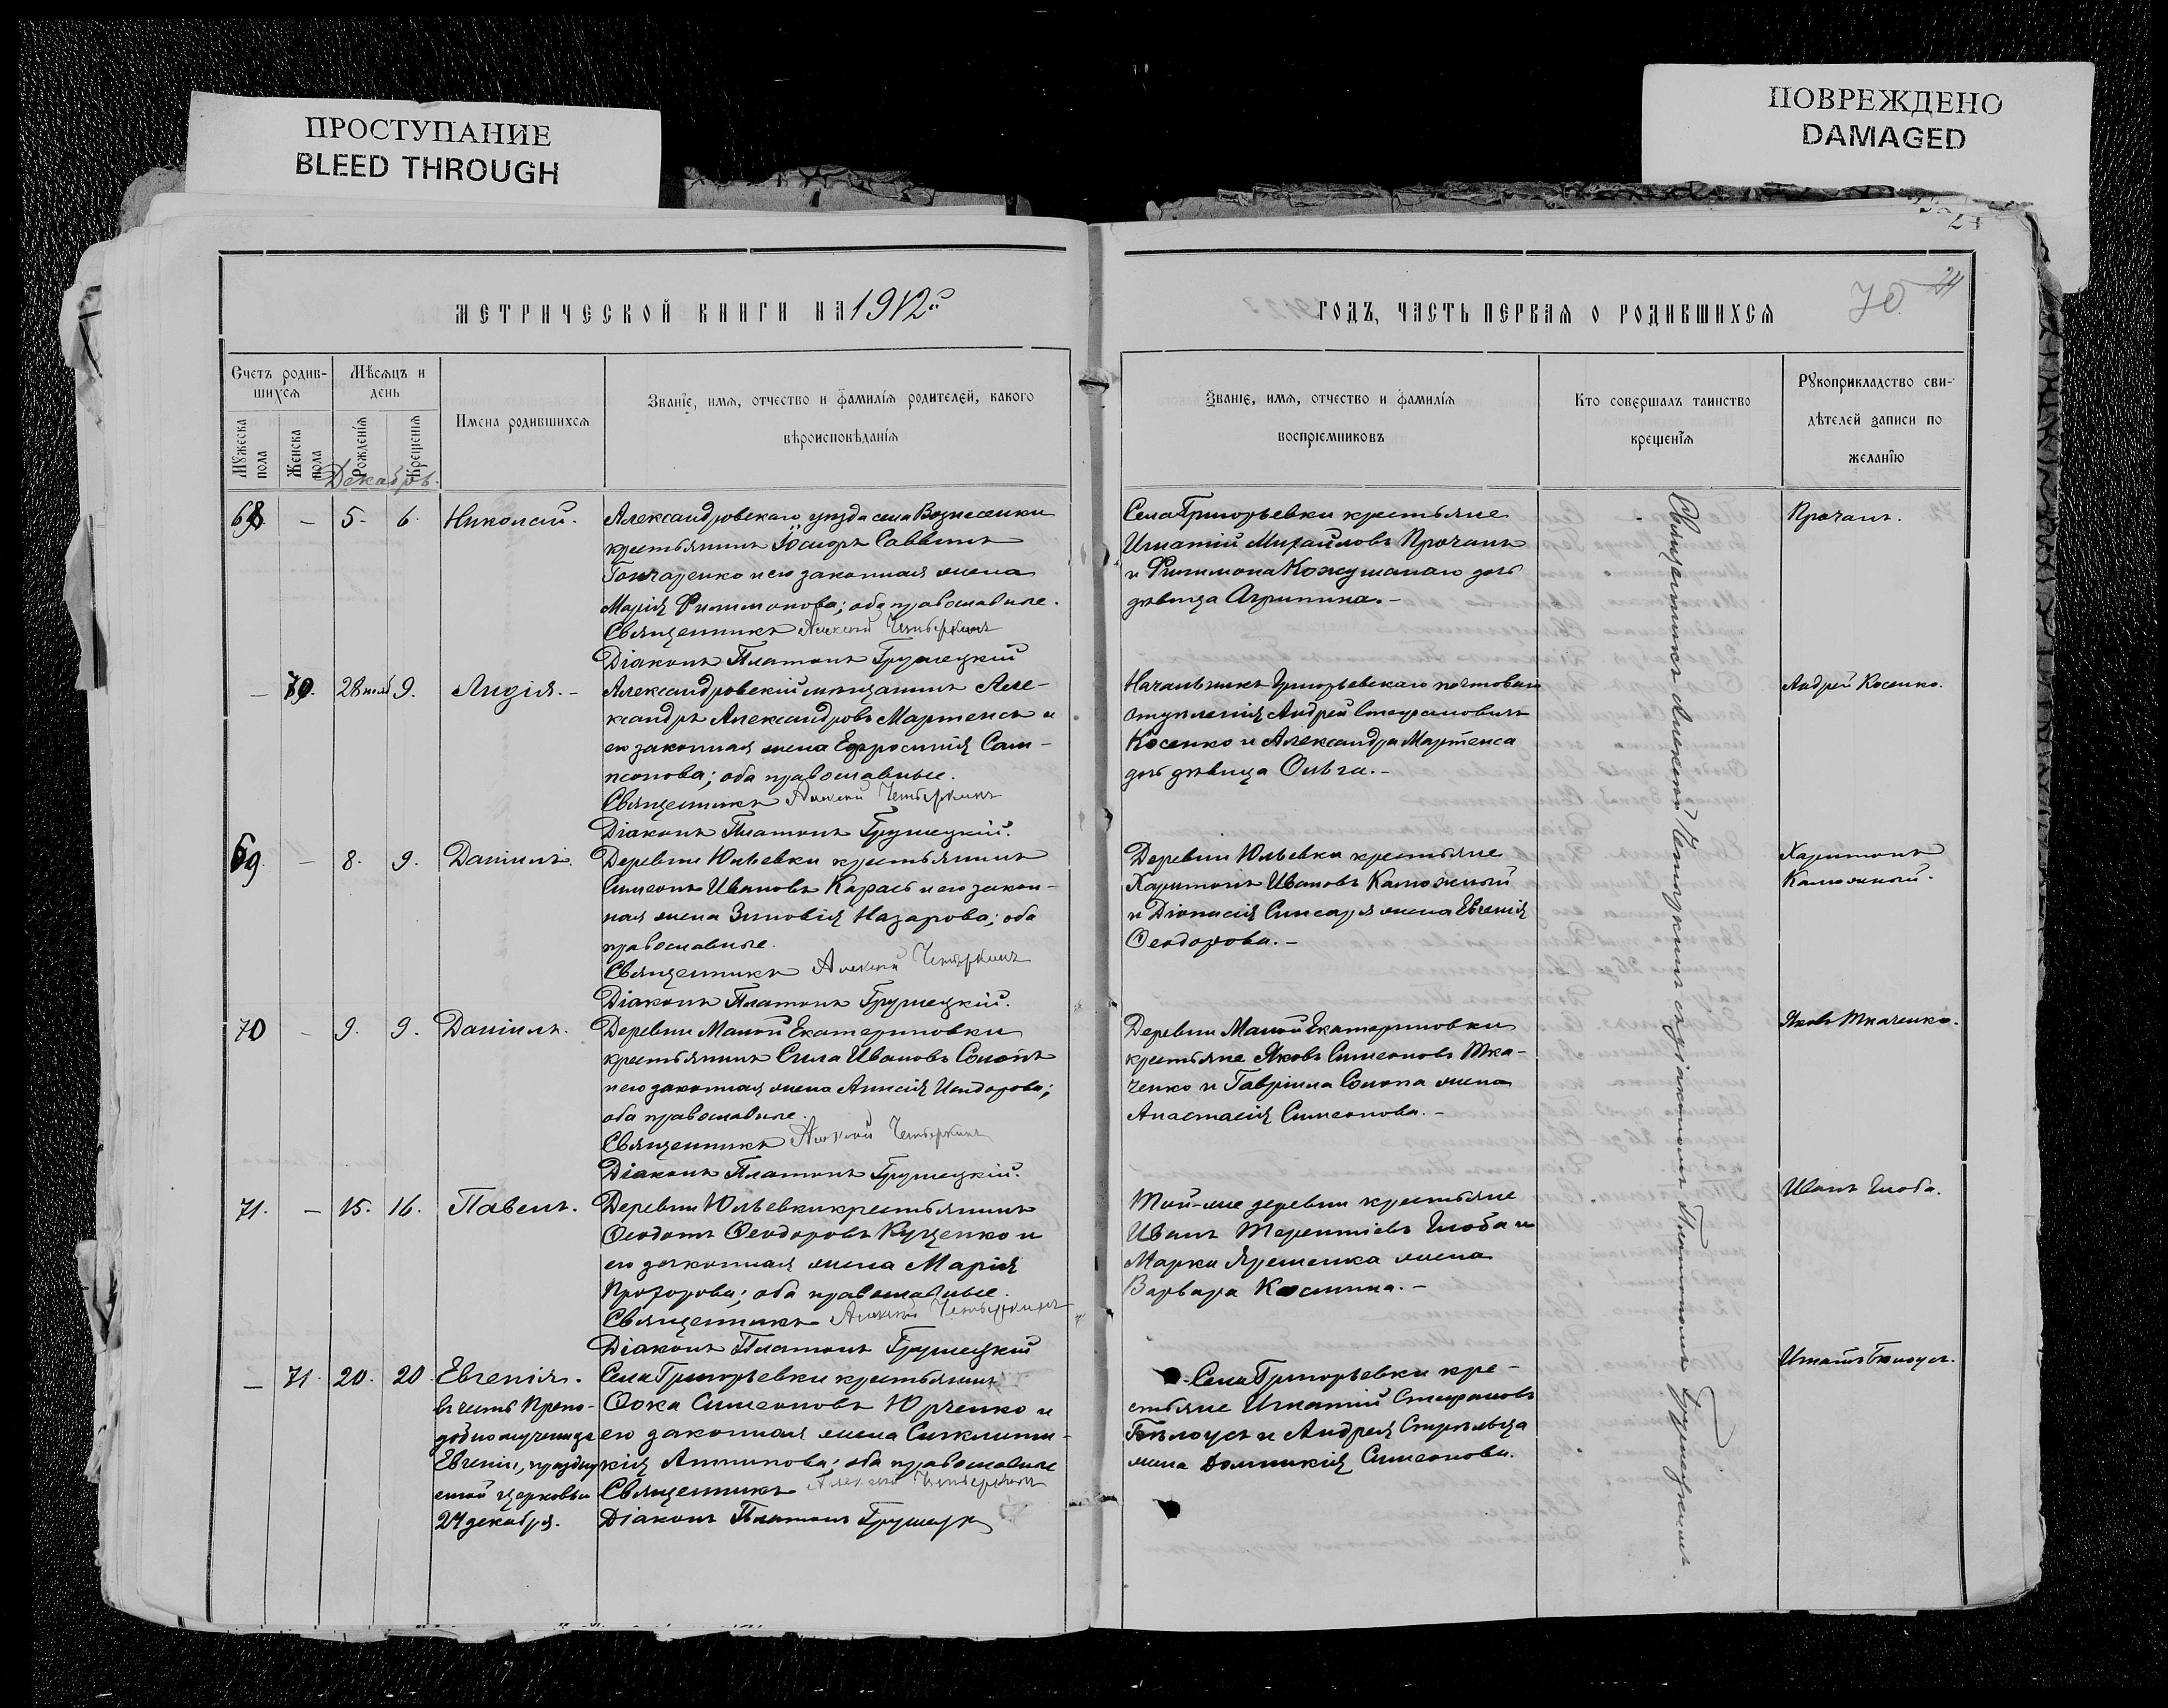 ПРОСТУПАНИЕ
BLEED THROUGH
ПОВРЕЖДЕНО
DAMAGED
МЕТРИЧЕСКОЙ КНИГИ НА 1912
Счетъ родив-
шихся
Мѣсяцъ и
день
Мужеска пола
Женска пола
Рожденія
Крещенія
Имена родившихся
Званіе, имя, отчество и фамилія родителей, какого
вѣроисповѣданія
Декабрь.
68. — 5. 6. Николай.
Александровскаго уѣзда села Вознесенки
крестьянинъ Саввинъ
Гончаренко и его законная жена
Марія Филимонова; оба православные.
Священникъ Алексій
Діаконъ Платонъ Грушецкій
— 70. 28 нояб 9. Лидія. —
Александровскій мѣщанинъ Але-
ксандръ Александровъ Мартенсъ и
его законная жена Ефросинія Сам-
псонова; оба православные.
Священникъ Алексій
Діаконъ Платонъ Грушецкій.
69. — 8. 9. Даніилъ.
Деревни Юльевки крестьянинъ
Симеонъ Ивановъ Карась и его закон-
ная жена Зиновія Назарова; оба
православные.
Священникъ Алексій
Діаконъ Платонъ Грушецкій.
70 — 9. 9. Даніилъ.
Деревни Малой Екатериновки
крестьянинъ Сила Ивановъ
и его законная жена Анисія Исидорова;
оба православные.
Священникъ Алексій
Діаконъ Платонъ Грушецкій.
71. — 15. 16. Павелъ.
Деревни Юльевки крестьянинъ
Ѳеодотъ Ѳеодоровъ Куценко и
его законная жена Марія
Прохорова; оба православные.
Священникъ Алексій
Діаконъ Платонъ Грушецкій
— 71. 20. 20. Евгенія.
въ честь Препо-
добномученицы
Евгеніи, праздну
емой церковью
24 декабря.
Села Григорьевки крестьянинъ
Ѳока Симеоновъ Юрченко и
его законная жена Синклити-
кія Антипова; оба православные
Священникъ Алексій
Діаконъ Платонъ Грушецк
ГОДЪ, ЧАСТЬ ПЕРВАЯ О РОДИВШИХСЯ
70
Званіе, имя, отчество и фамилія
воспріемниковъ
Кто совершалъ таинство
крещенія
Рукоприкладство сви-
дѣтелей записи по
желанію
Села Григорьевки крестьяне
Игнатій Михайловъ Прочанъ
и Филимона Кожушанаго дочь
дѣвица Агрипина. —
Прочанъ.
Начальникъ Григорьевскаго почтоваго
отдѣленія Андрей Стефановичъ
Косенко и Александра Мартенса
дочь дѣвица Ольга. —
Андрей Косенко.
Деревни Юльевки крестьяне
Харитонъ Ивановъ Калюжный
и Діонисія Слисаря жена Евгенія
Ѳеодорова. —
Харитонъ
Калюжный.
Деревни Малой Екатериновки
крестьяне Яковъ Симеоновъ Тка-
ченко и Гавріила жена
Анастасія Симеонова. —
Яковъ Ткаченко.
Той-же деревни крестьяне
Иванъ Терентіевъ Глоба и
Марка Яременка жена
Варвара Космина. —
Иванъ Глоба.
Села Григорьевки кре-
стьяне Игнатій Стефановъ
Бѣлоусъ и Андрея Стрѣльца
жена Домникія Симеонова.
Игнатъ Бѣлоусъ.
Священникъ Алексій съ діакономъ Платономъ Грушецкимъ.